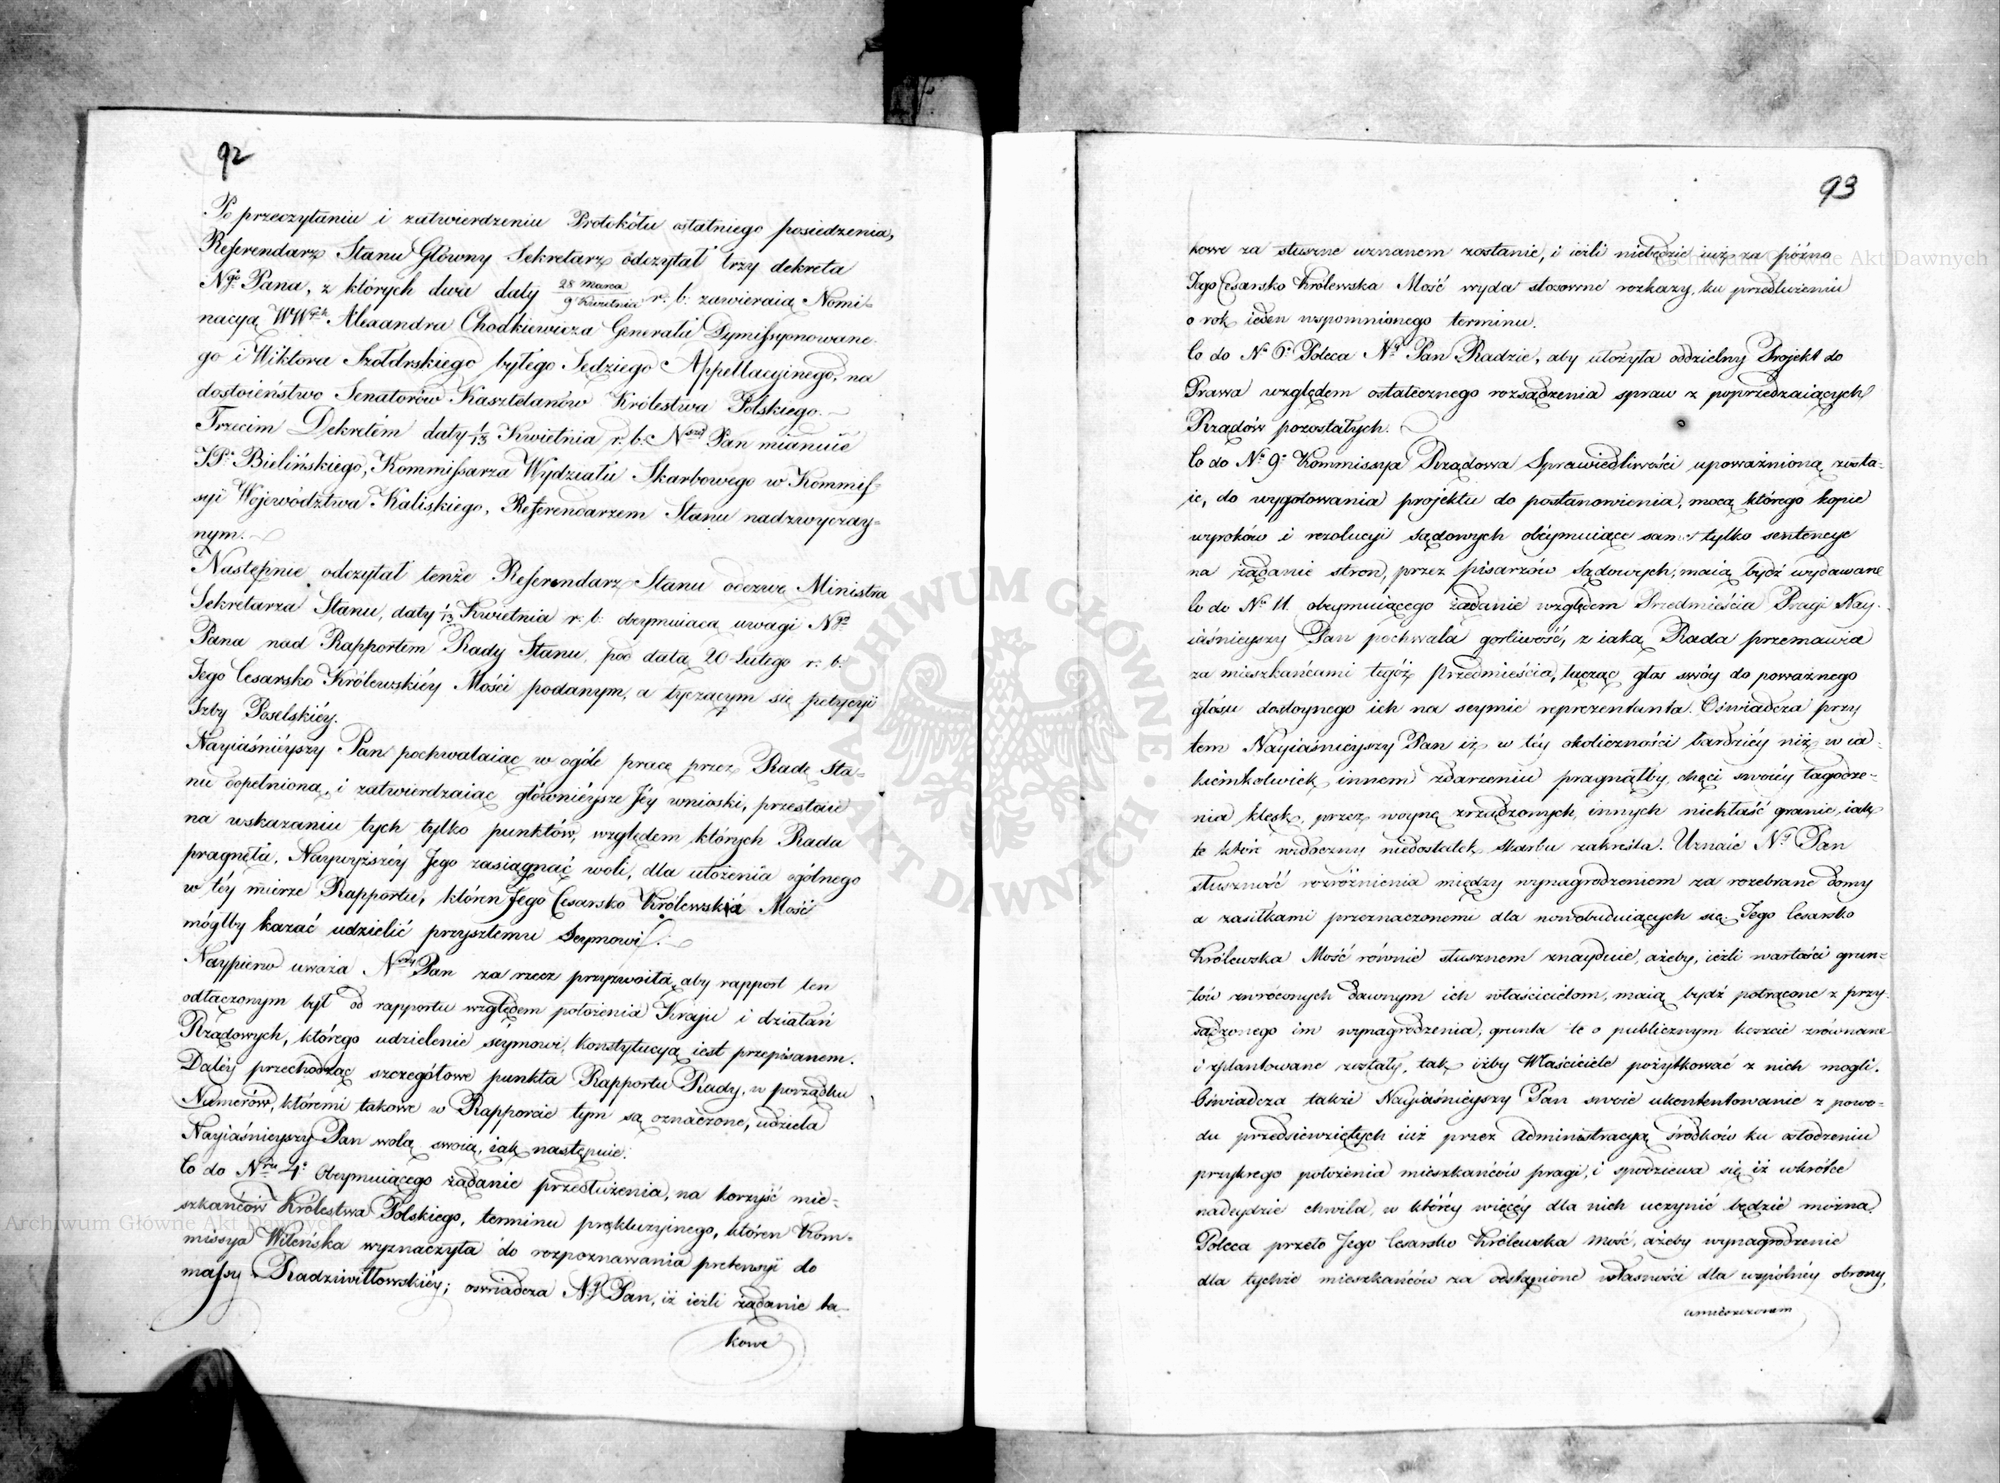 92
Po przeczytaniu i zatwierdzeniu Protokółu ostatniego posiedzenia,
Referendarz Stanu Główny Sekretarz odczytał trzy dekreta
Ngo. Pana, z których dwa daty 28 Marca / 9 Kwietnia r: b: zawieraią Nomi-
nacyą WWch Alexandra Chodkiewicza Generała Dymissyonowane-
go i Wiktora Szołdrskiego byłego Sędziego Appellacyinego, na
dostoieństwo Senatorów Kasztelanów Królestwa Polskiego.
Trzecim Dekretem daty 1/13 Kwietnia r: b: Nszy Pan mianuie
JP. Bielińskiego, Kommissarza Wydziału Skarbowego w Kommis-
syi Województwa Kaliskiego, Referendarzem Stanu nadzwyczay-
nym.
Następnie odczytał tenże Referendarz Stanu odezwę Ministra
Sekretarza Stanu, daty 1/13 Kwietnia r: b: obeymuiącą uwagi Ngo.
Pana nad Rapportem Rady Stanu, pod datą 20 Lutego r: b:
Jego Cesarsko Królewskiéy Mości podanym, a tyczącym się petycyi
Izby Poselskiéy.
Nayiaśnieyszy Pan pochwalaiąc w ogóle pracę przez Radę Sta-
nu dopełnioną, i zatwierdzaiąc główniéysze Jéy wnioski, przestaie
na wskazaniu tych tylko punktów, względem których Rada
pragnęła, Naywyższéy Jego zasiągnąć woli, dla ułożenia ogólnego
w téy mierze Rapportu, któren Jego Cesarsko Królewska Mość
mógłby kazać udzielić przyszłemu Seymowi.
Naypierw uważa Nszy Pan za rzecz przyzwoitą, aby rapport ten
odłączonym był od rapportu względem położenia Kraju i działań
Rządowych, którego udzielenie seymowi, konstytucyą iest przepisanem.
Daléy przechodząc szczegółowe punkta Rapportu Rady, w porządku
Numerów, któremi takowe w Rapporcie tym są oznaczone, udziela
Nayiaśnieyszy Pan wolą swoią, iak następuie:
Co do Nru 4o. Obeymuiącego żądanie przedłużenia, na korzyść mie-
szkańców Królestwa Polskiego, terminu prekluzyinego, któren Kom-
missya Wileńska wyznaczyła do rozpoznawania pretensyi do
massy Radziwiłłowskiéy; oswiadcza Ny Pan, iż ieżli żądanie ta-
kowe
93
kowe za słuszne uznanem zostanie, i ieżli niebędzie iuż za późno
Jego Cesarsko Królewska Mość wyda stosowne rozkazy, ku przedłużeniu
o rok ieden wspomnionego terminu.
Co do No 6o. Poleca Ny Pan Radzie, aby ułożyła oddzielny Projekt do
Prawa względem ostatecznego rozsądzenia spraw z poprzedzaiących
Rządów pozostałych.
Co do No 9o. Kommissya Rządowa Sprawiedliwości upoważnioną zosta-
ie, do wygotowania projektu do postanowienia, mocą którego kopie
wyroków i rezolucyi sądowych obéymuiące same tylko sentencye
na żądanie stron, przez pisarzów sądowych, maią bydź wydawane
Co do No 11. obeymuiącego żądanie względem Przedmieścia Pragi Nay-
iaśnieyszy Pan pochwala gorliwość, z iaką Rada przemawia
za mieszkańcami tegóż Przedmieścia, łącząc głos swóy do poważnego
głosu dostoynego ich na seymie reprezentanta. Oświadcza przy
tem Nayiaśnieyszy Pan iż w téy okoliczności bardziéy niż w ia-
kiémkolwiek innem zdarzeniu pragnąłby, chęci swoiéy łagodze-
nia klęsk, przez woynę zrządzonych, innych niekłaść granic, iak
te które widoczny niedostatek skarbu zakreśla. Uznaie Ny Pan
słuszność rozróżnienia między wynagrodzeniem za rozebrane domy
a zasiłkami przeznaczonemi dla nowobuduiących się. Jego Cesarsko
Królewska Mość równie słusznem znayduie, ażeby, ieżli wartości grun-
tów zwróconych dawnym ich właścicielom, maią bydź potrącone z przy-
sądzonego im wynagrodzenia, grunta te o publicznym koszcie zrównane
i splantowane zostały, tak iżby Właściciele pożytkować z nich mogli.
Oświadcza także Nayiaśnieyszy Pan swoie ukontentowanie z powo-
du przedsięwziętych iuż przez administracyą środków ku osłodzeniu
przykrego położenia mieszkańców pragi, i spodziewa się iż wkrótce
nadeydzie chwila, w któréy więcéy dla nich uczynić będzie można.
Poleca przeto Jego Cesarsko Królewska Mość, ażeby wynagrodzenie
dla tychże mieszkańców za odstąpione własności dla wspólnéy obrony,
umieszczonem